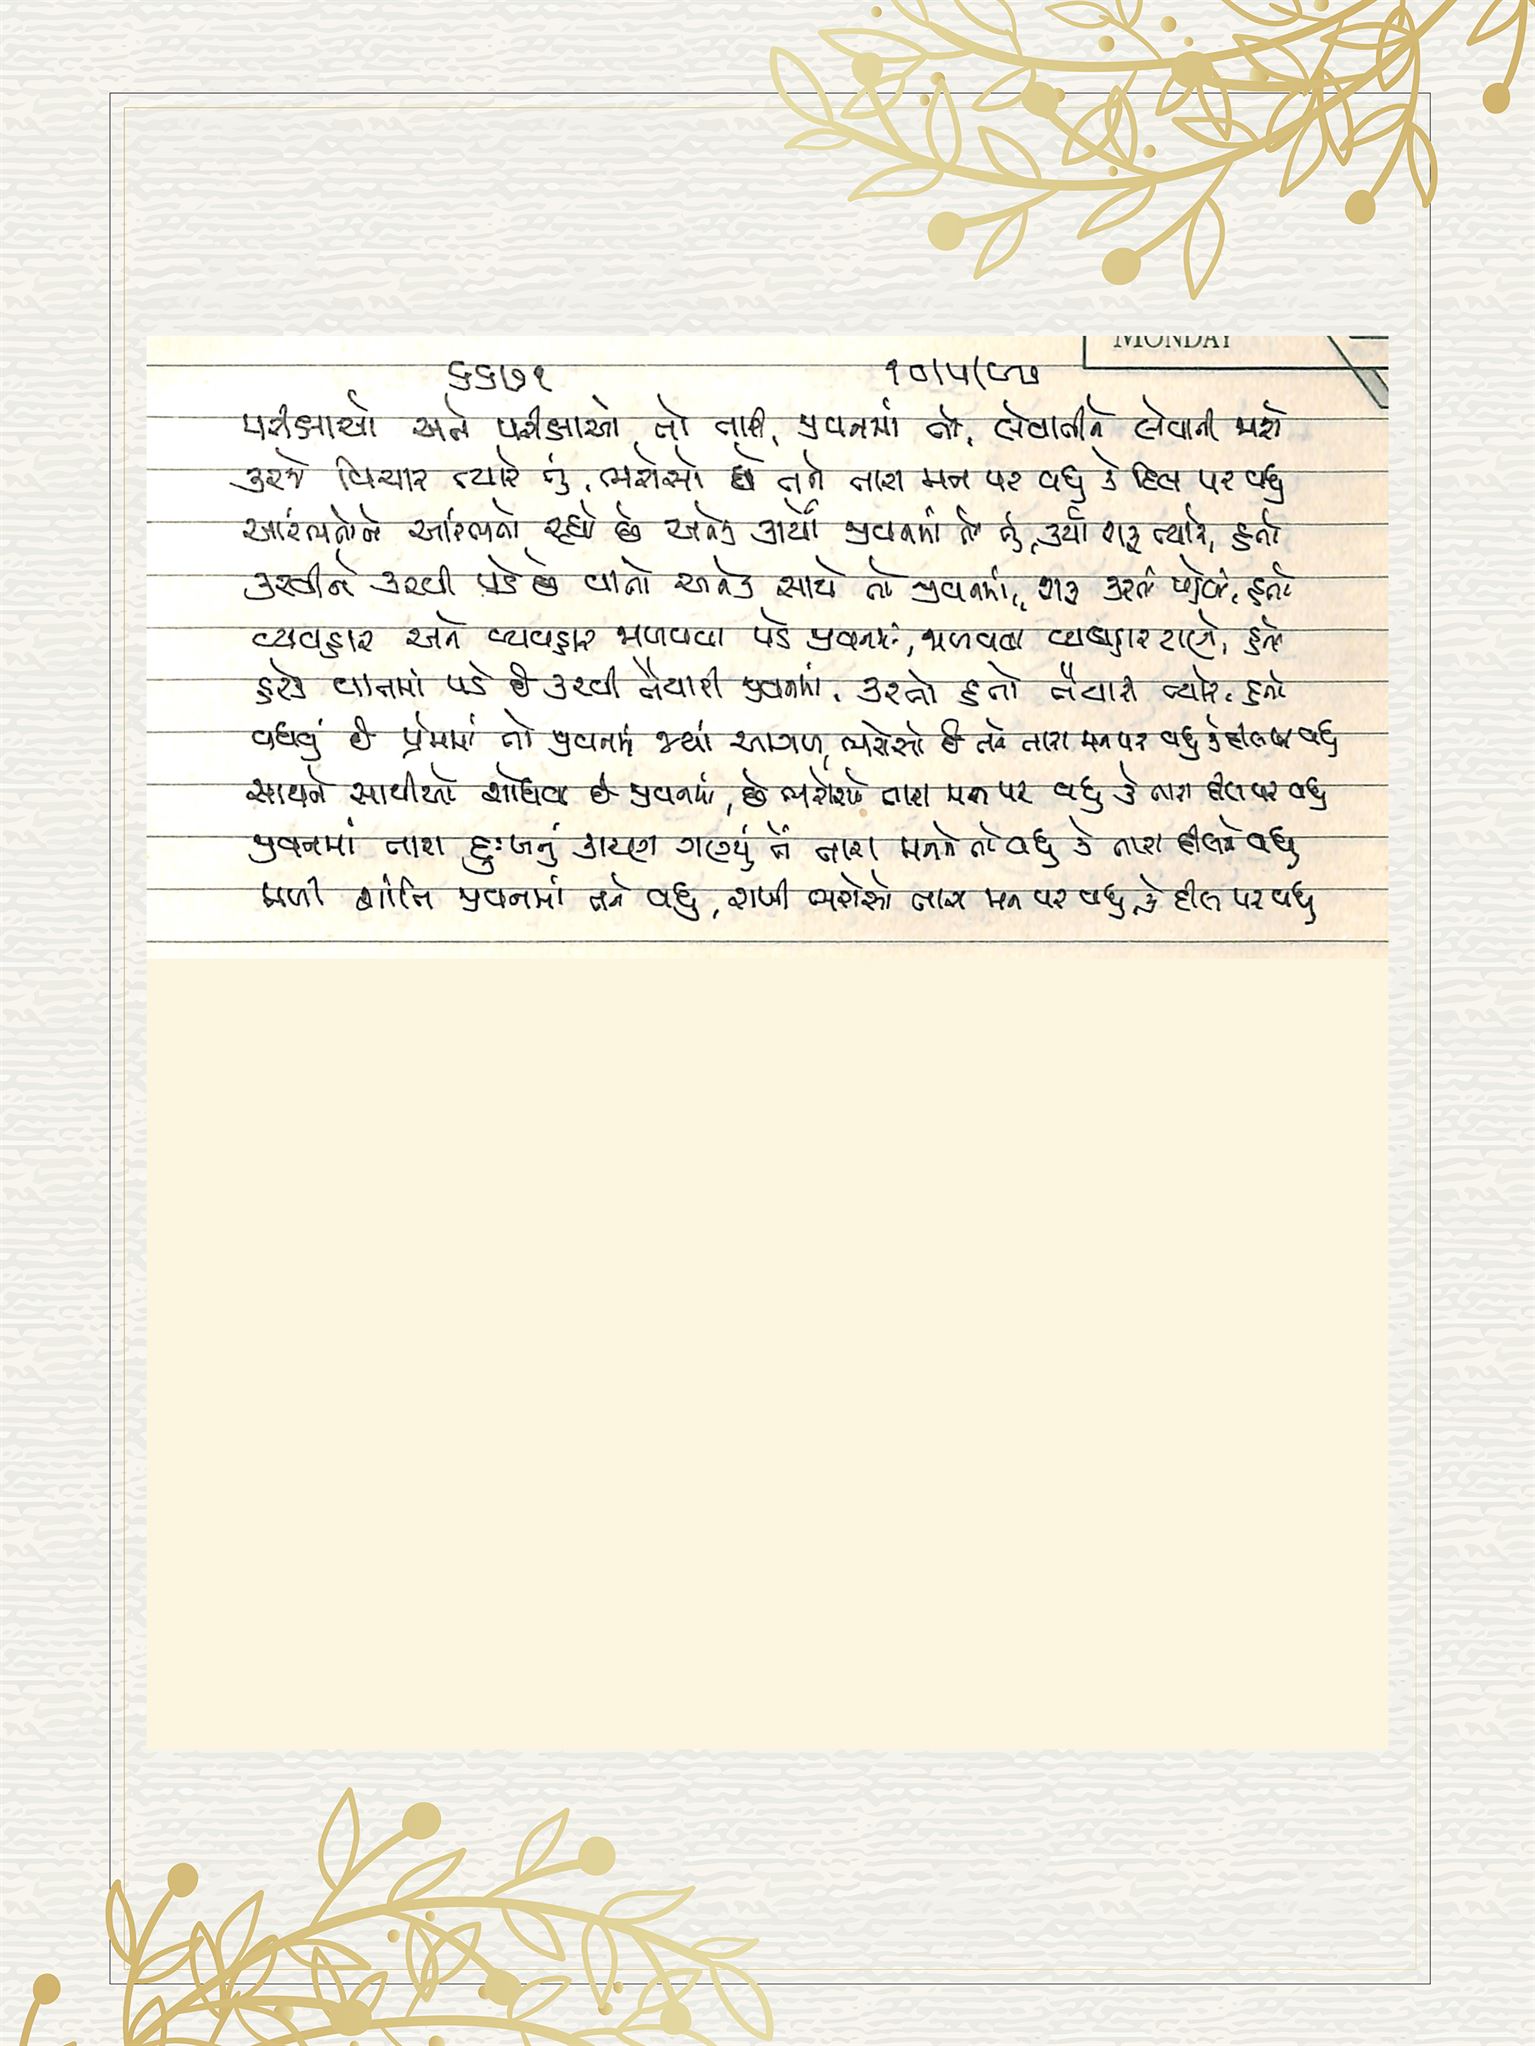 MONDAY
૬૬૭૧ ૧૦/૫/૯૭
પરીક્ષાઓ અને પરીક્ષાઓ તો તારી, જીવનમાં તો, લેવાતીને લેવાતી જાશે
કરજે વિચાર ત્યારે તું, ભરોસો છે તને તારા મન પર વધુ કે દિલ પર વધુ
આરંભતોને આરંભતો રહ્યો છે અનેક કાર્યો જીવનમાં તો તું, કર્યા શરૂ ત્યારે, હતો
કરવીને કરવી પડે છે વાતો અનેક સાથે તો જીવનમાં, શરૂ કરતાં પહેલાં, હતો
વ્યવહાર અને વ્યવહાર જાળવવા પડે જીવનમાં, જાળવતા વ્યવહાર ટાણે, હતો
હરેક વાતમાં પડે છે કરવી તૈયારી જીવનમાં, કરતો હતો તૈયારી ત્યારે, હતો
વધવું છે પ્રેમમાં તો જીવનમાં જ્યાં આગળ, ભરોસો છે તને તારા મન પર વધુ કે દીલ પર વધુ
સાથને સાથીઓ શોધવા છે જીવનમાં, છે ભરોસો તારા મન પર વધુ કે તારા દીલ પર વધુ
જીવનમાં તારા દુઃખનું કારણ ગણ્યું તેં તારા મનને તો વધુ કે તારા દીલને વધુ
મળી શાંતિ જીવનમાં તને વધુ, રાખી ભરોસો તારા મન પર વધુ, કે દીલ પર વધુ